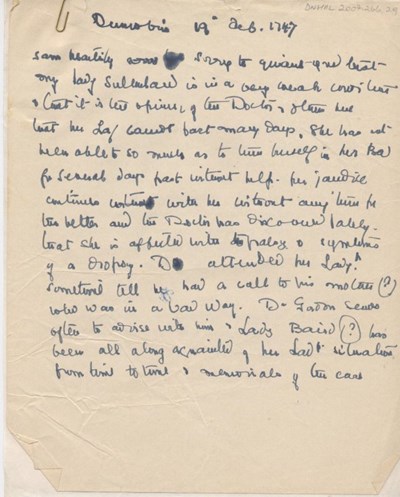 Dunrobin 19th Feb. 1747
I am heartily sorry to acquaint you that
my Lady Sutherland is in a very weak condition
& that it is the opinion of the Doctors & others here
that her Lap cannot last many days, she has not
been able to so much as to turn herself in her Bed
for several days past without help. her jaundice
continues with her without any turn for
the better and the Doctor has discovered lately
that she is affected with & symptoms
of a dropsy. Dr attended her Ladyp
sometime till he had a call to his mother (?)
who was in a bad way. Dr Gordon sends
often to advise with him & Lady Baird (?) has
been all along acquainted of her Ladp situation
from time to time & memorials of the case